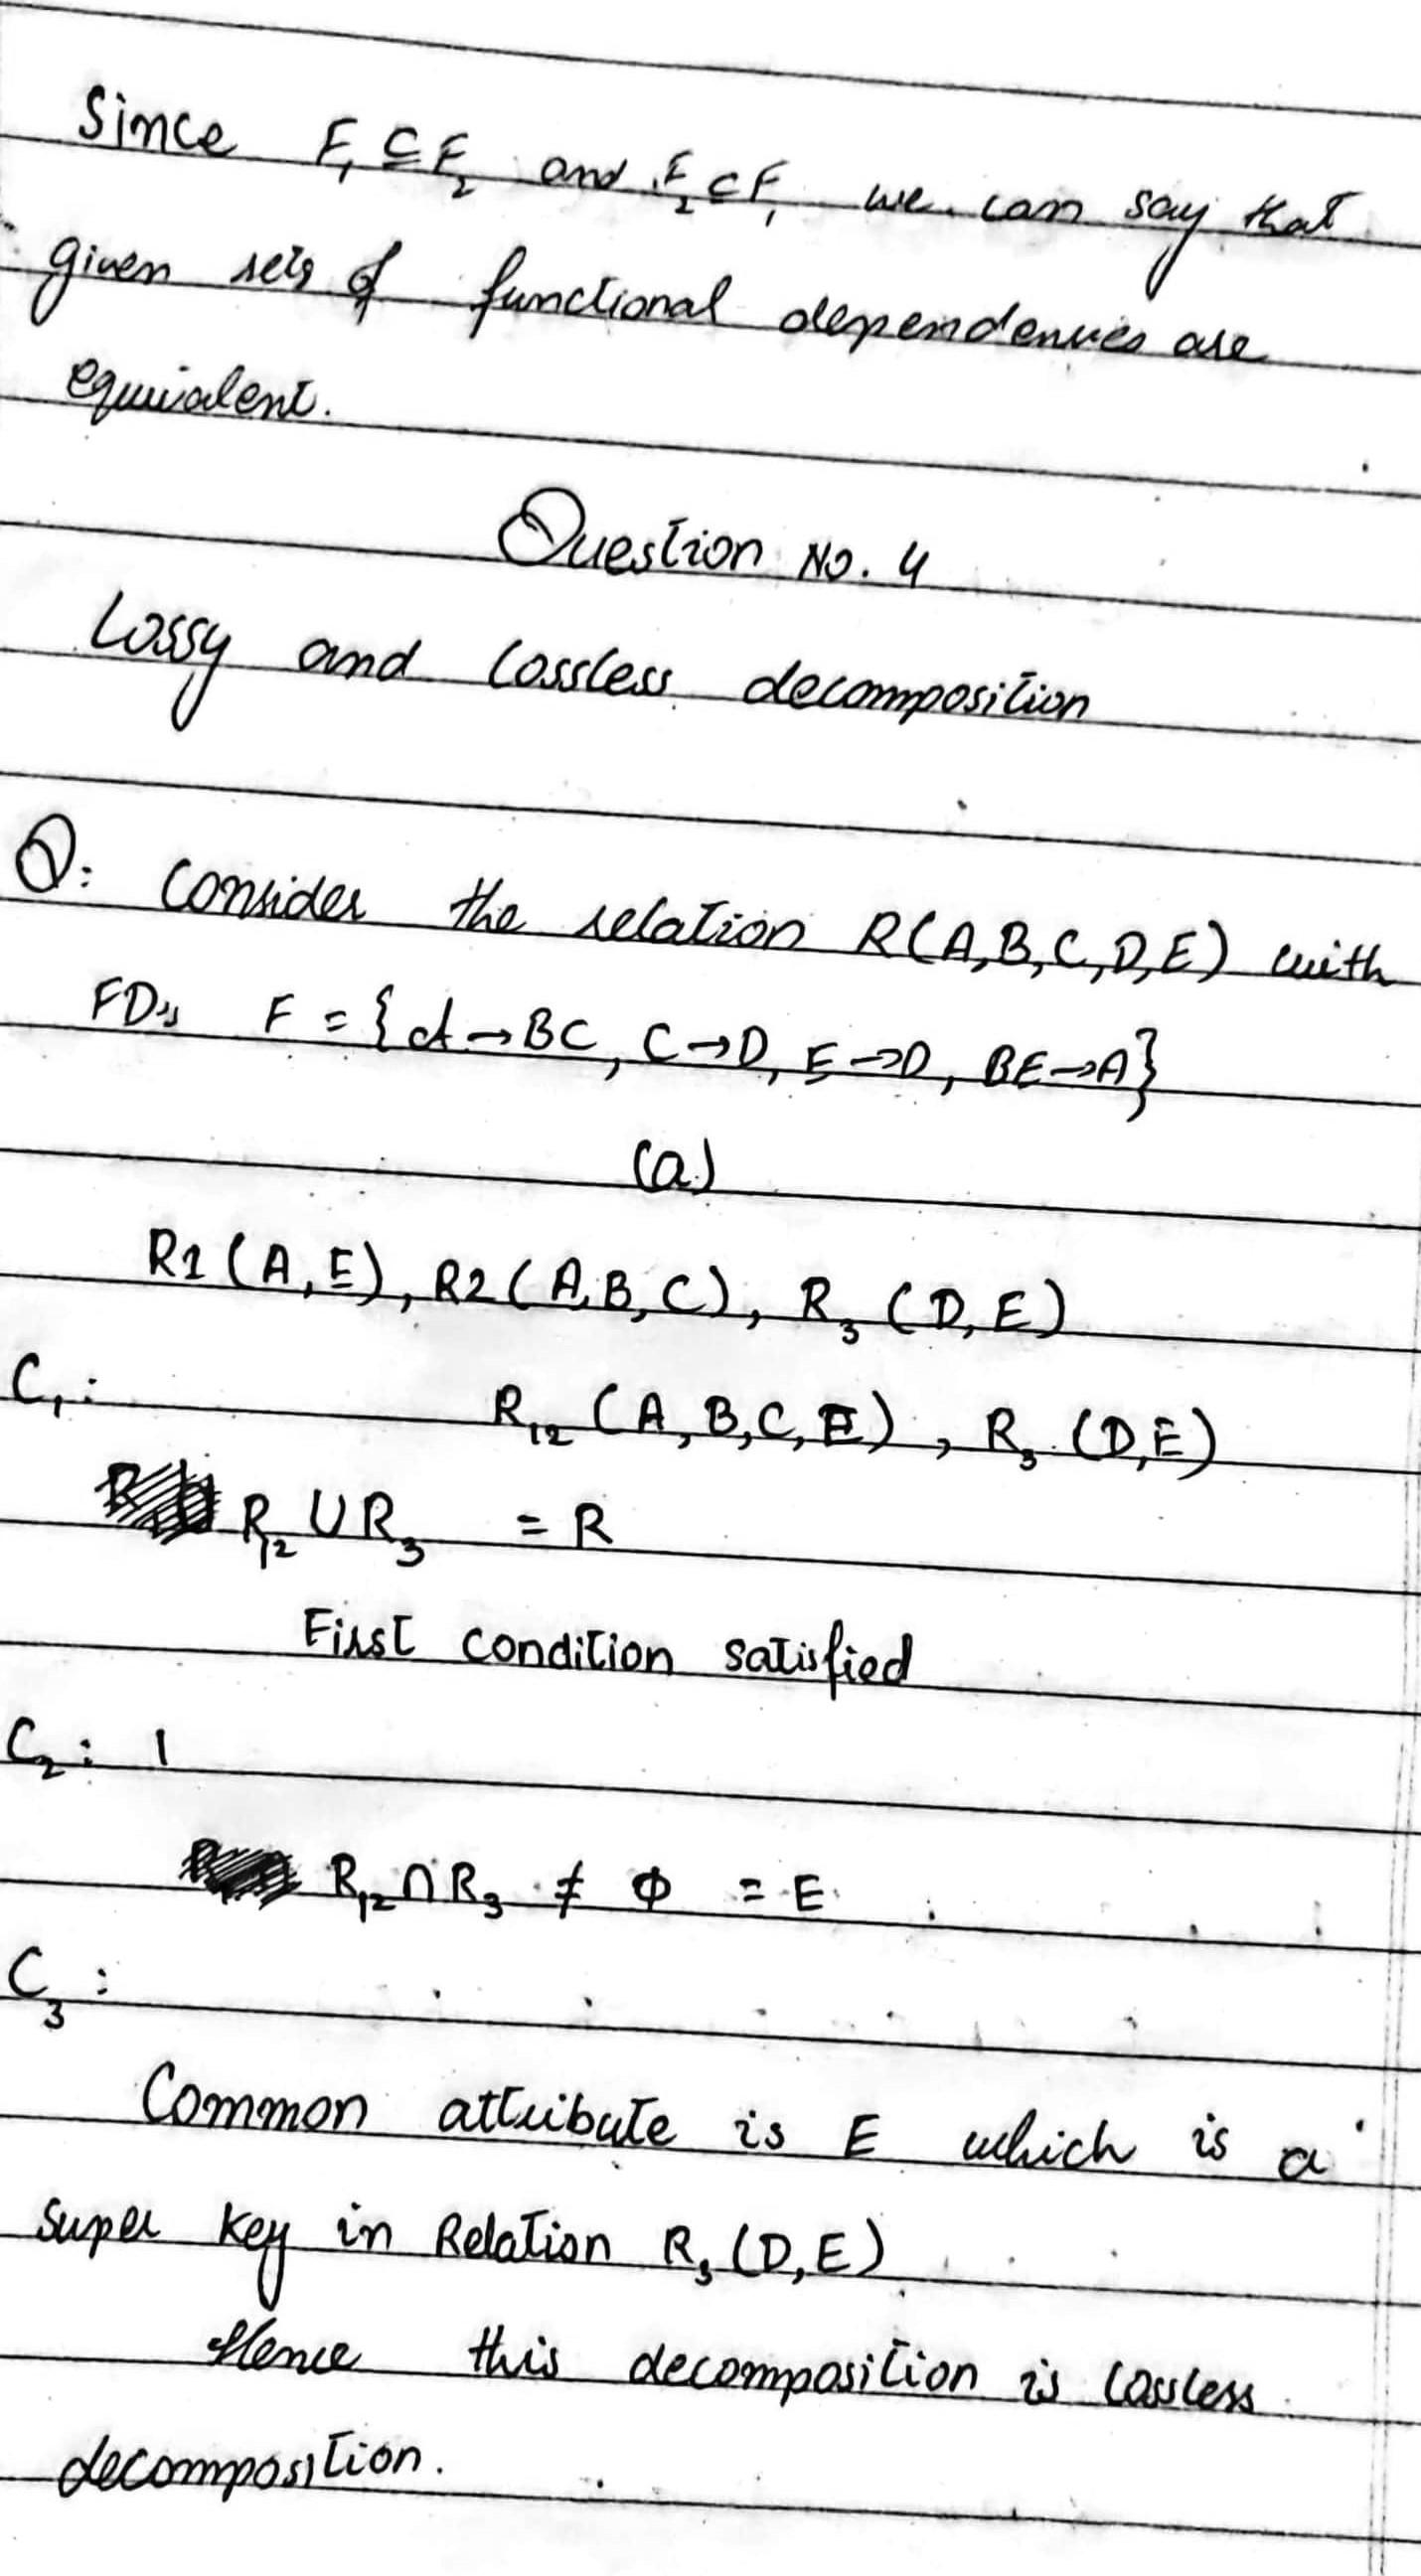 Since F₁ ⊆ F₂ and F₂ ⊂ F₁ we can say that
given sets of functional dependencies are
equivalent.
Question No. 4
Lossy and lossless decomposition
Q: Consider the relation R(A,B,C,D,E) with
FDs F = {A→BC, C→D, E→D, BE→A}
(a)
R1(A,E), R2(A,B,C), R₃(D,E)
C₁: R₁₂(A,B,C,E), R₃(D,E)
R₁₂ ∪ R₃ = R
First condition satisfied
C₂: 1
R₁₂ ∩ R₃ ≠ Φ = E
C₃:
Common attribute is E which is a
super key in Relation R₃(D,E)
Hence this decomposition is lossless
decomposition.